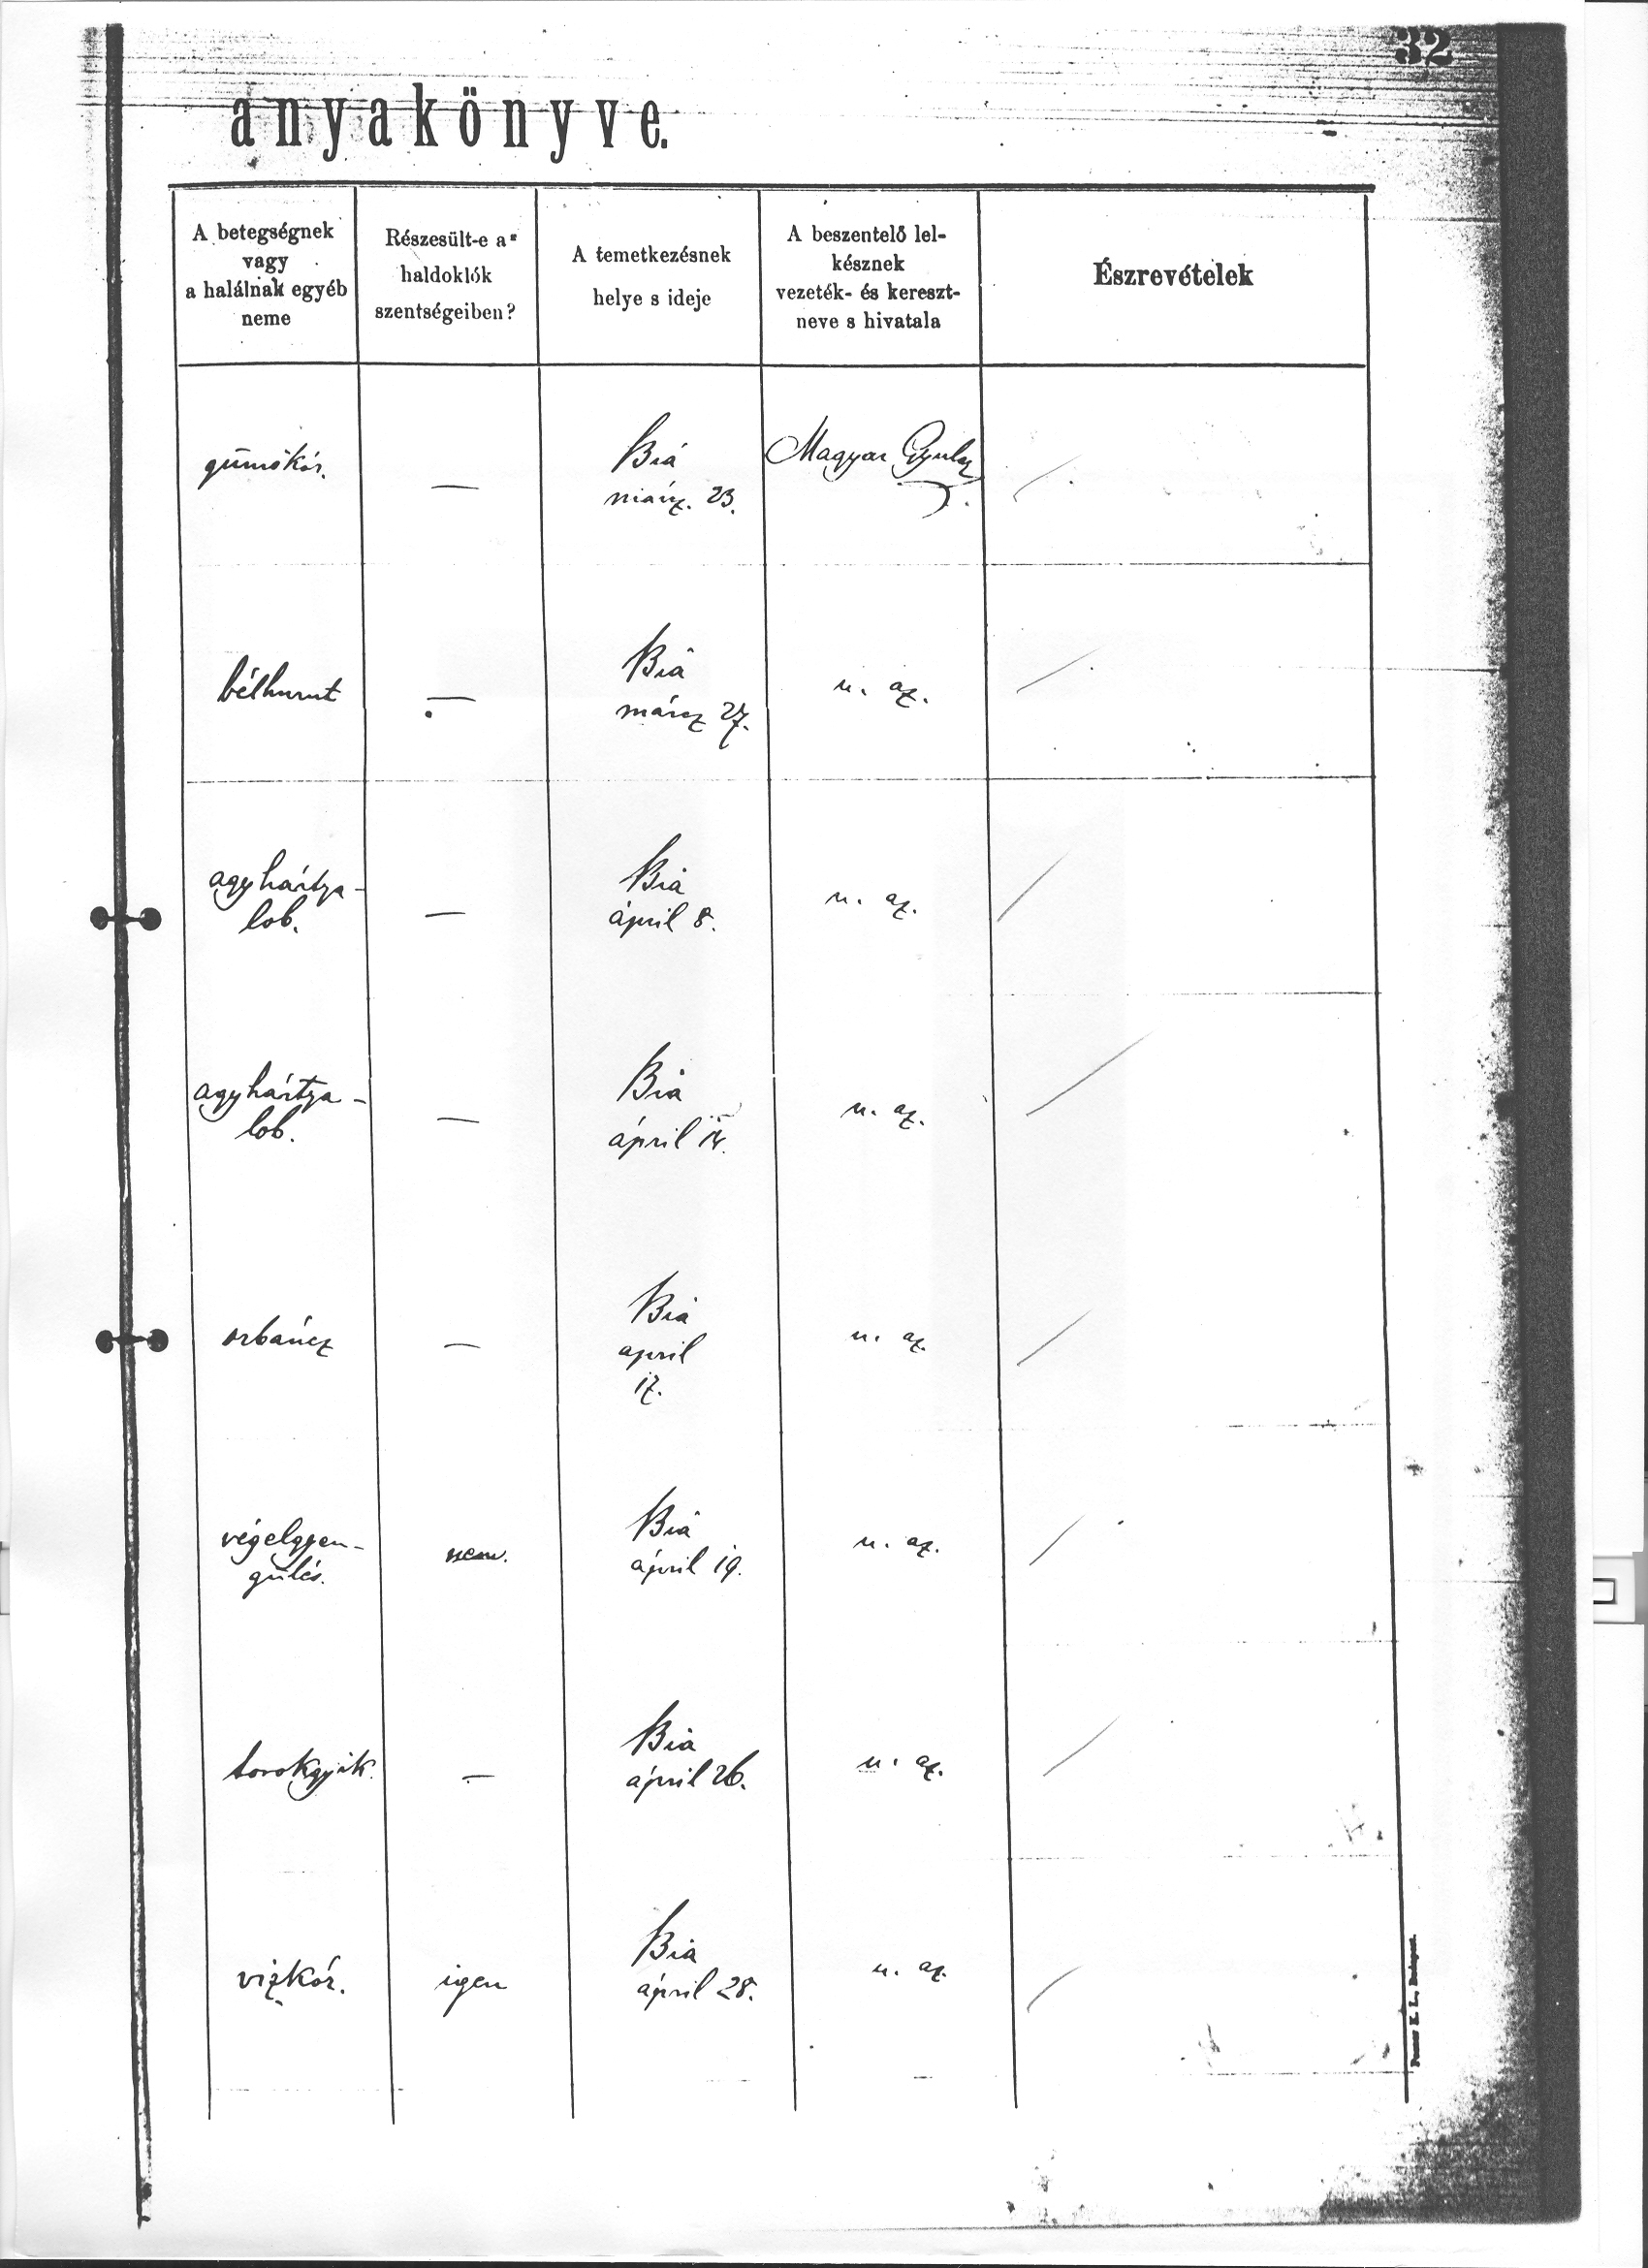 32
anyakönyve.
A betegségnek
vagy
a halálnak egyéb
neme
Részesült-e a
haldoklók
szentségeiben?
A temetkezésnek
helye s ideje
A beszentelő lel-
késznek
vezeték- és kereszt-
neve s hivatala
Észrevételek
gümőkór.
—
Bia
márcz. 23.
Magyar Gyula
bélhurut
—
Bia
márcz 27.
u. az.
agyhártya-
lob.
—
Bia
április 8.
u. az.
agyhártya-
lob.
—
Bia
április 14.
u. az.
orbáncz
—
Bia
april
17.
u. az.
végelgyen-
gülés.
nem.
Bia
április 19.
u. az.
torokgyík.
—
Bia
április 26.
u. az.
vizkór.
igen
Bia
április 28.
u. az.